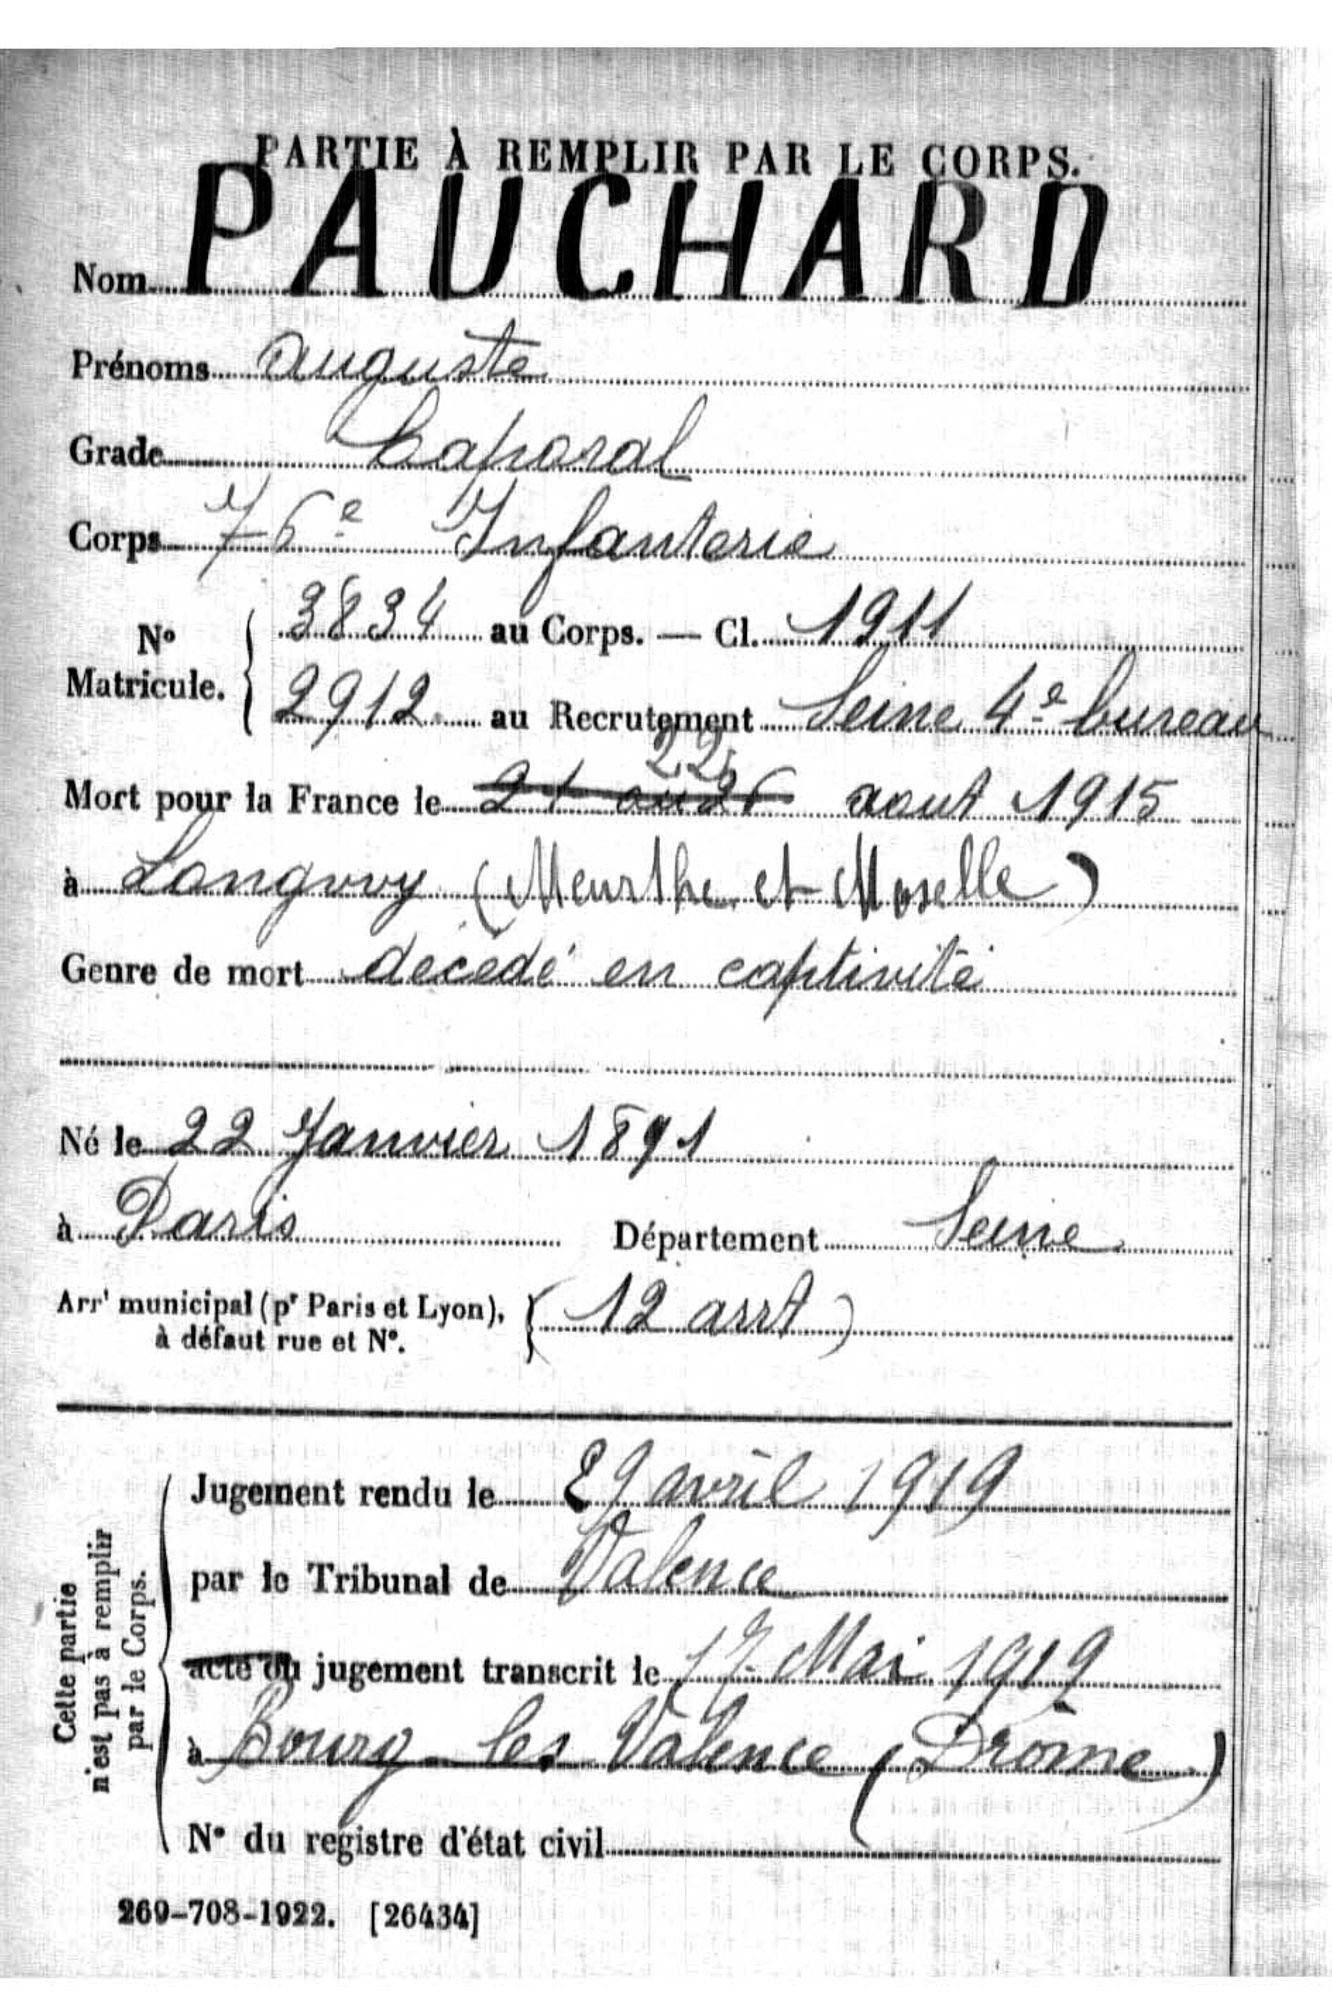 PARTIE À REMPLIR PAR LE CORPS.
Nom PAUCHARD
Prénoms Auguste
Grade Caporal
Corps 76e Infanterie
N° Matricule. { 3834 au Corps. — Cl. 1911
2912 au Recrutement Seine 4e bureau
22
Mort pour la France le 21 au 26 aout 1915
à Longwy (Meurthe et Moselle)
Genre de mort décédé en captivité
Né le 22 Janvier 1891
à Paris Département Seine
Arrt municipal (pr Paris et Lyon), à défaut rue et N°. { (12 arrt)
Cette partie n'est pas à remplir par le Corps.
Jugement rendu le 29 avril 1919
par le Tribunal de Valence
acte ou jugement transcrit le 17 Mai 1919
à Bourg les Valence (Drôme)
N° du registre d'état civil
269-708-1922. [26434]